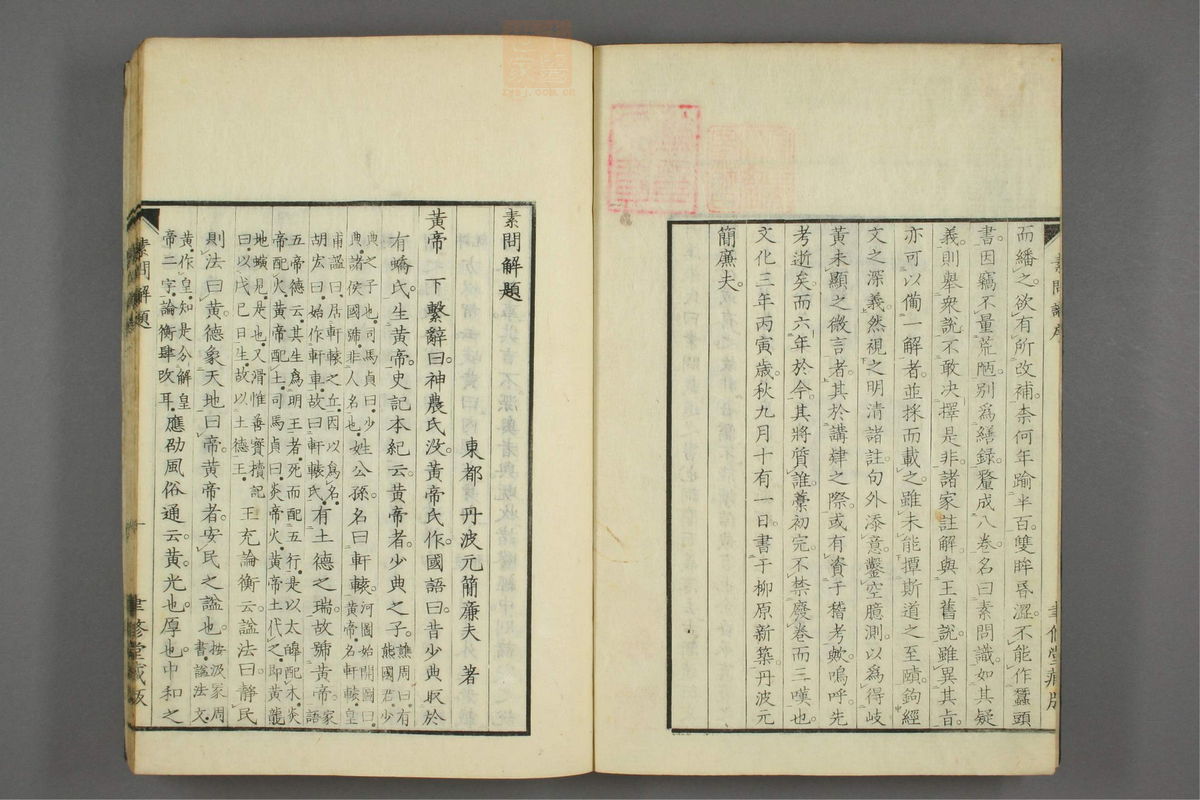 而繙之欲有所改補柰何年踰半百雙眸昏澀不能作蠶頭
書因竊不量荒陋別爲繕錄釐成八卷名曰素問識如其疑
義則舉衆說不敢決擇是非諸家註解與王舊說雖異其旨
亦可以備一解者並採而載之雖未能撢斯道之至賾鉤經
文之深義然視之明清諸註句外添意鑿空臆測以爲得岐
黃未顯之微言者其於講肆之際或有資于稽考歟嗚呼先
考逝矣而六年於今其將質誰藁初完不禁廢卷而三嘆也
文化三年丙寅歲秋九月十有一日書于柳原新築丹波元
簡廉夫
素問解題
東都 丹波元簡廉夫 著
黃帝 下繫辭曰神農氏沒黃帝氏作國語曰昔少典取於
有蟜氏生黃帝史記本紀云黃帝者少典之子譙周曰有熊國君少
典之子也司馬貞曰少典諸侯國號非人名也姓公孫名曰軒轅河圖始開圖曰黃帝名軒轅皇
甫謐曰居軒轅之丘因以爲名胡宏曰始作軒車故曰軒轅氏有土德之瑞故號黃帝家語
五帝德云其生爲明王者死而配五行是以太皞配木炎帝配火黃帝配土司馬貞曰炎帝火黃帝土代之即黃龍
地螾見是也又滑惟善寳櫝記曰以戊巳日生故以土德王王充論衡云謚法曰靜民
則法曰黃德象天地曰帝黃帝者安民之謚也按汲冢周書謚法文
黃作皇知是分解皇帝二字論衡肆攺耳應劭風俗通云黃光也厚也中和之
素問解題
一
聿修堂藏版
聿修堂藏版